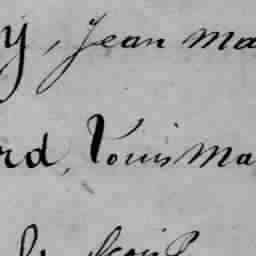 y, Jean Ma
rd, Louis Ma